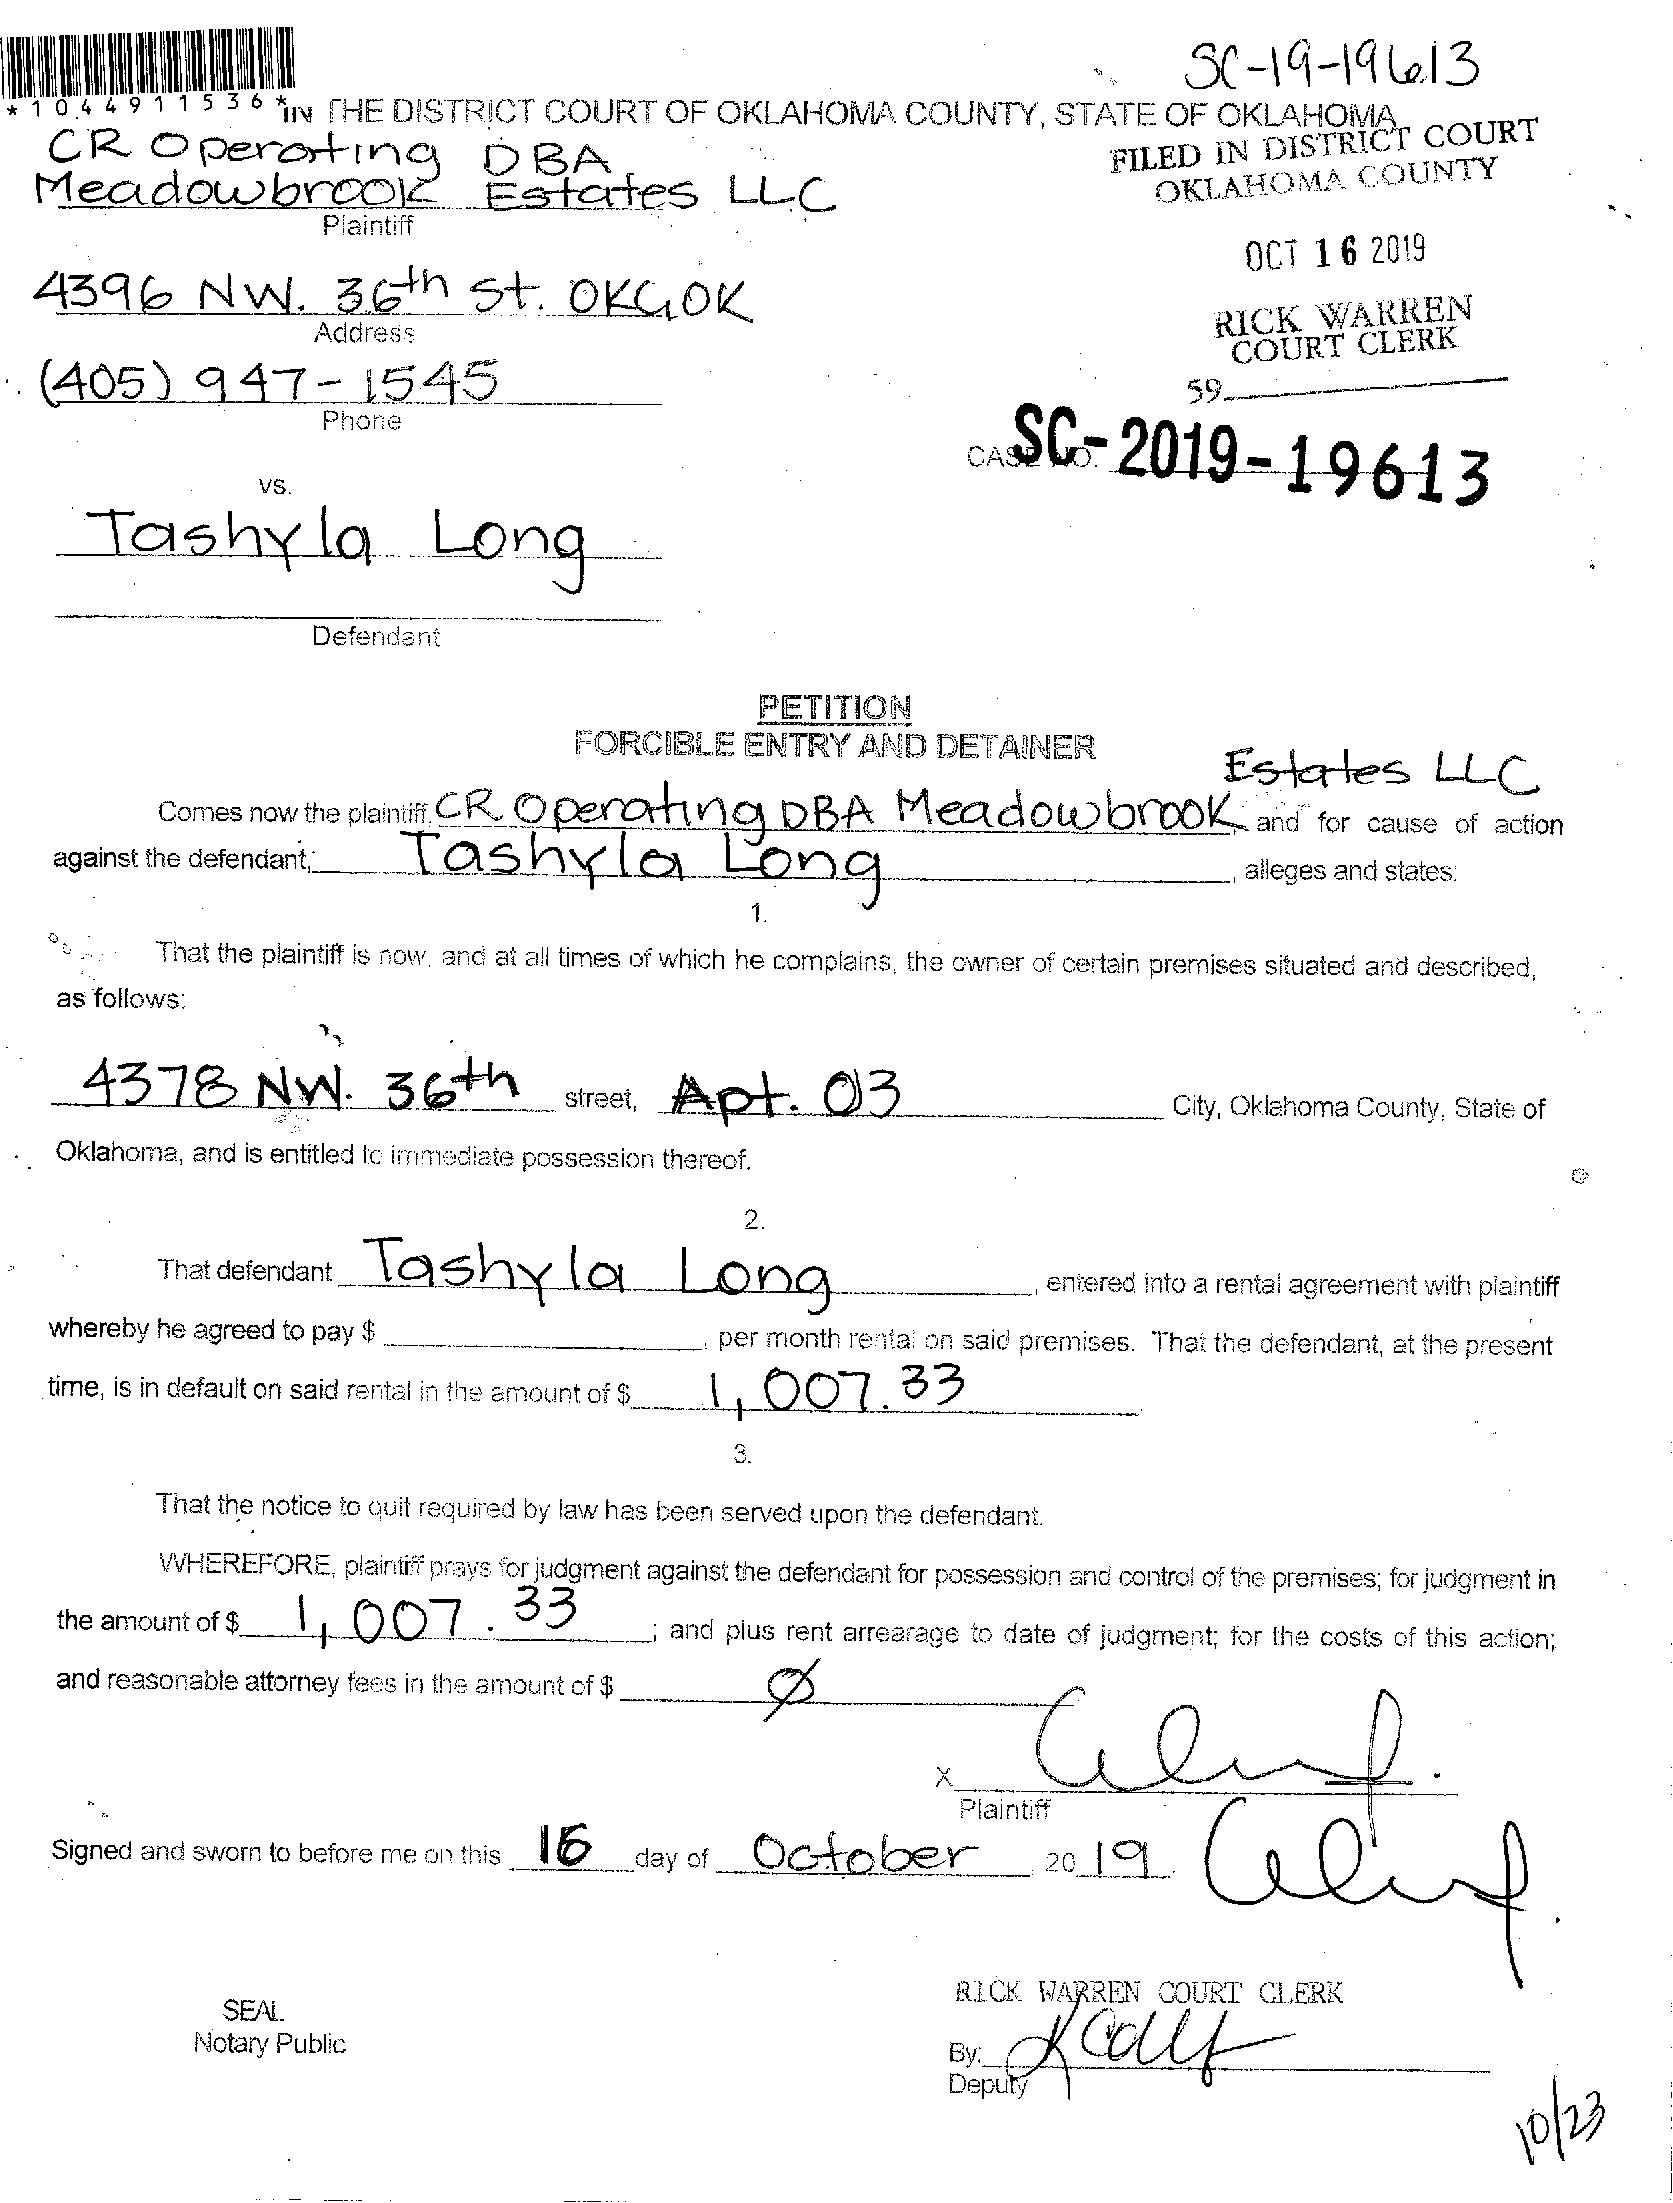 SC-19-19613
*1044911536*
IN THE DISTRICT COURT OF OKLAHOMA COUNTY, STATE OF OKLAHOMA
FILED IN DISTRICT COURT
OKLAHOMA COUNTY
CR Operating DBA
Meadowbrook Estates LLC
Plaintiff
OCT 16 2019
4396 NW. 36th St. OKC, OK
Address
RICK WARREN
COURT CLERK
(405) 947-1545
Phone
59
CASE NO. SC-2019-19613
vs.
Tashyla Long
Defendant
PETITION
FORCIBLE ENTRY AND DETAINER
Estates LLC
Comes now the plaintiff, CR Operating DBA Meadowbrook, and for cause of action
against the defendant, Tashyla Long, alleges and states:
1.
That the plaintiff is now, and at all times of which he complains, the owner of certain premises situated and described,
as follows:
4378 NW. 36th street, Apt. 03 City, Oklahoma County, State of
Oklahoma, and is entitled to immediate possession thereof.
2.
That defendant Tashyla Long, entered into a rental agreement with plaintiff
whereby he agreed to pay $, per month rental on said premises. That the defendant, at the present
time, is in default on said rental in the amount of $ 1,007.33
3.
That the notice to quit required by law has been served upon the defendant.
WHEREFORE, plaintiff prays for judgment against the defendant for possession and control of the premises; for judgment in
the amount of $ 1,007.33; and plus rent arrearage to date of judgment; for the costs of this action;
and reasonable attorney fees in the amount of $ Ø
X
Plaintiff
Signed and sworn to before me on this 16 day of October 2019.
RICK WARREN COURT CLERK
SEAL
Notary Public
By:
Deputy
10/23